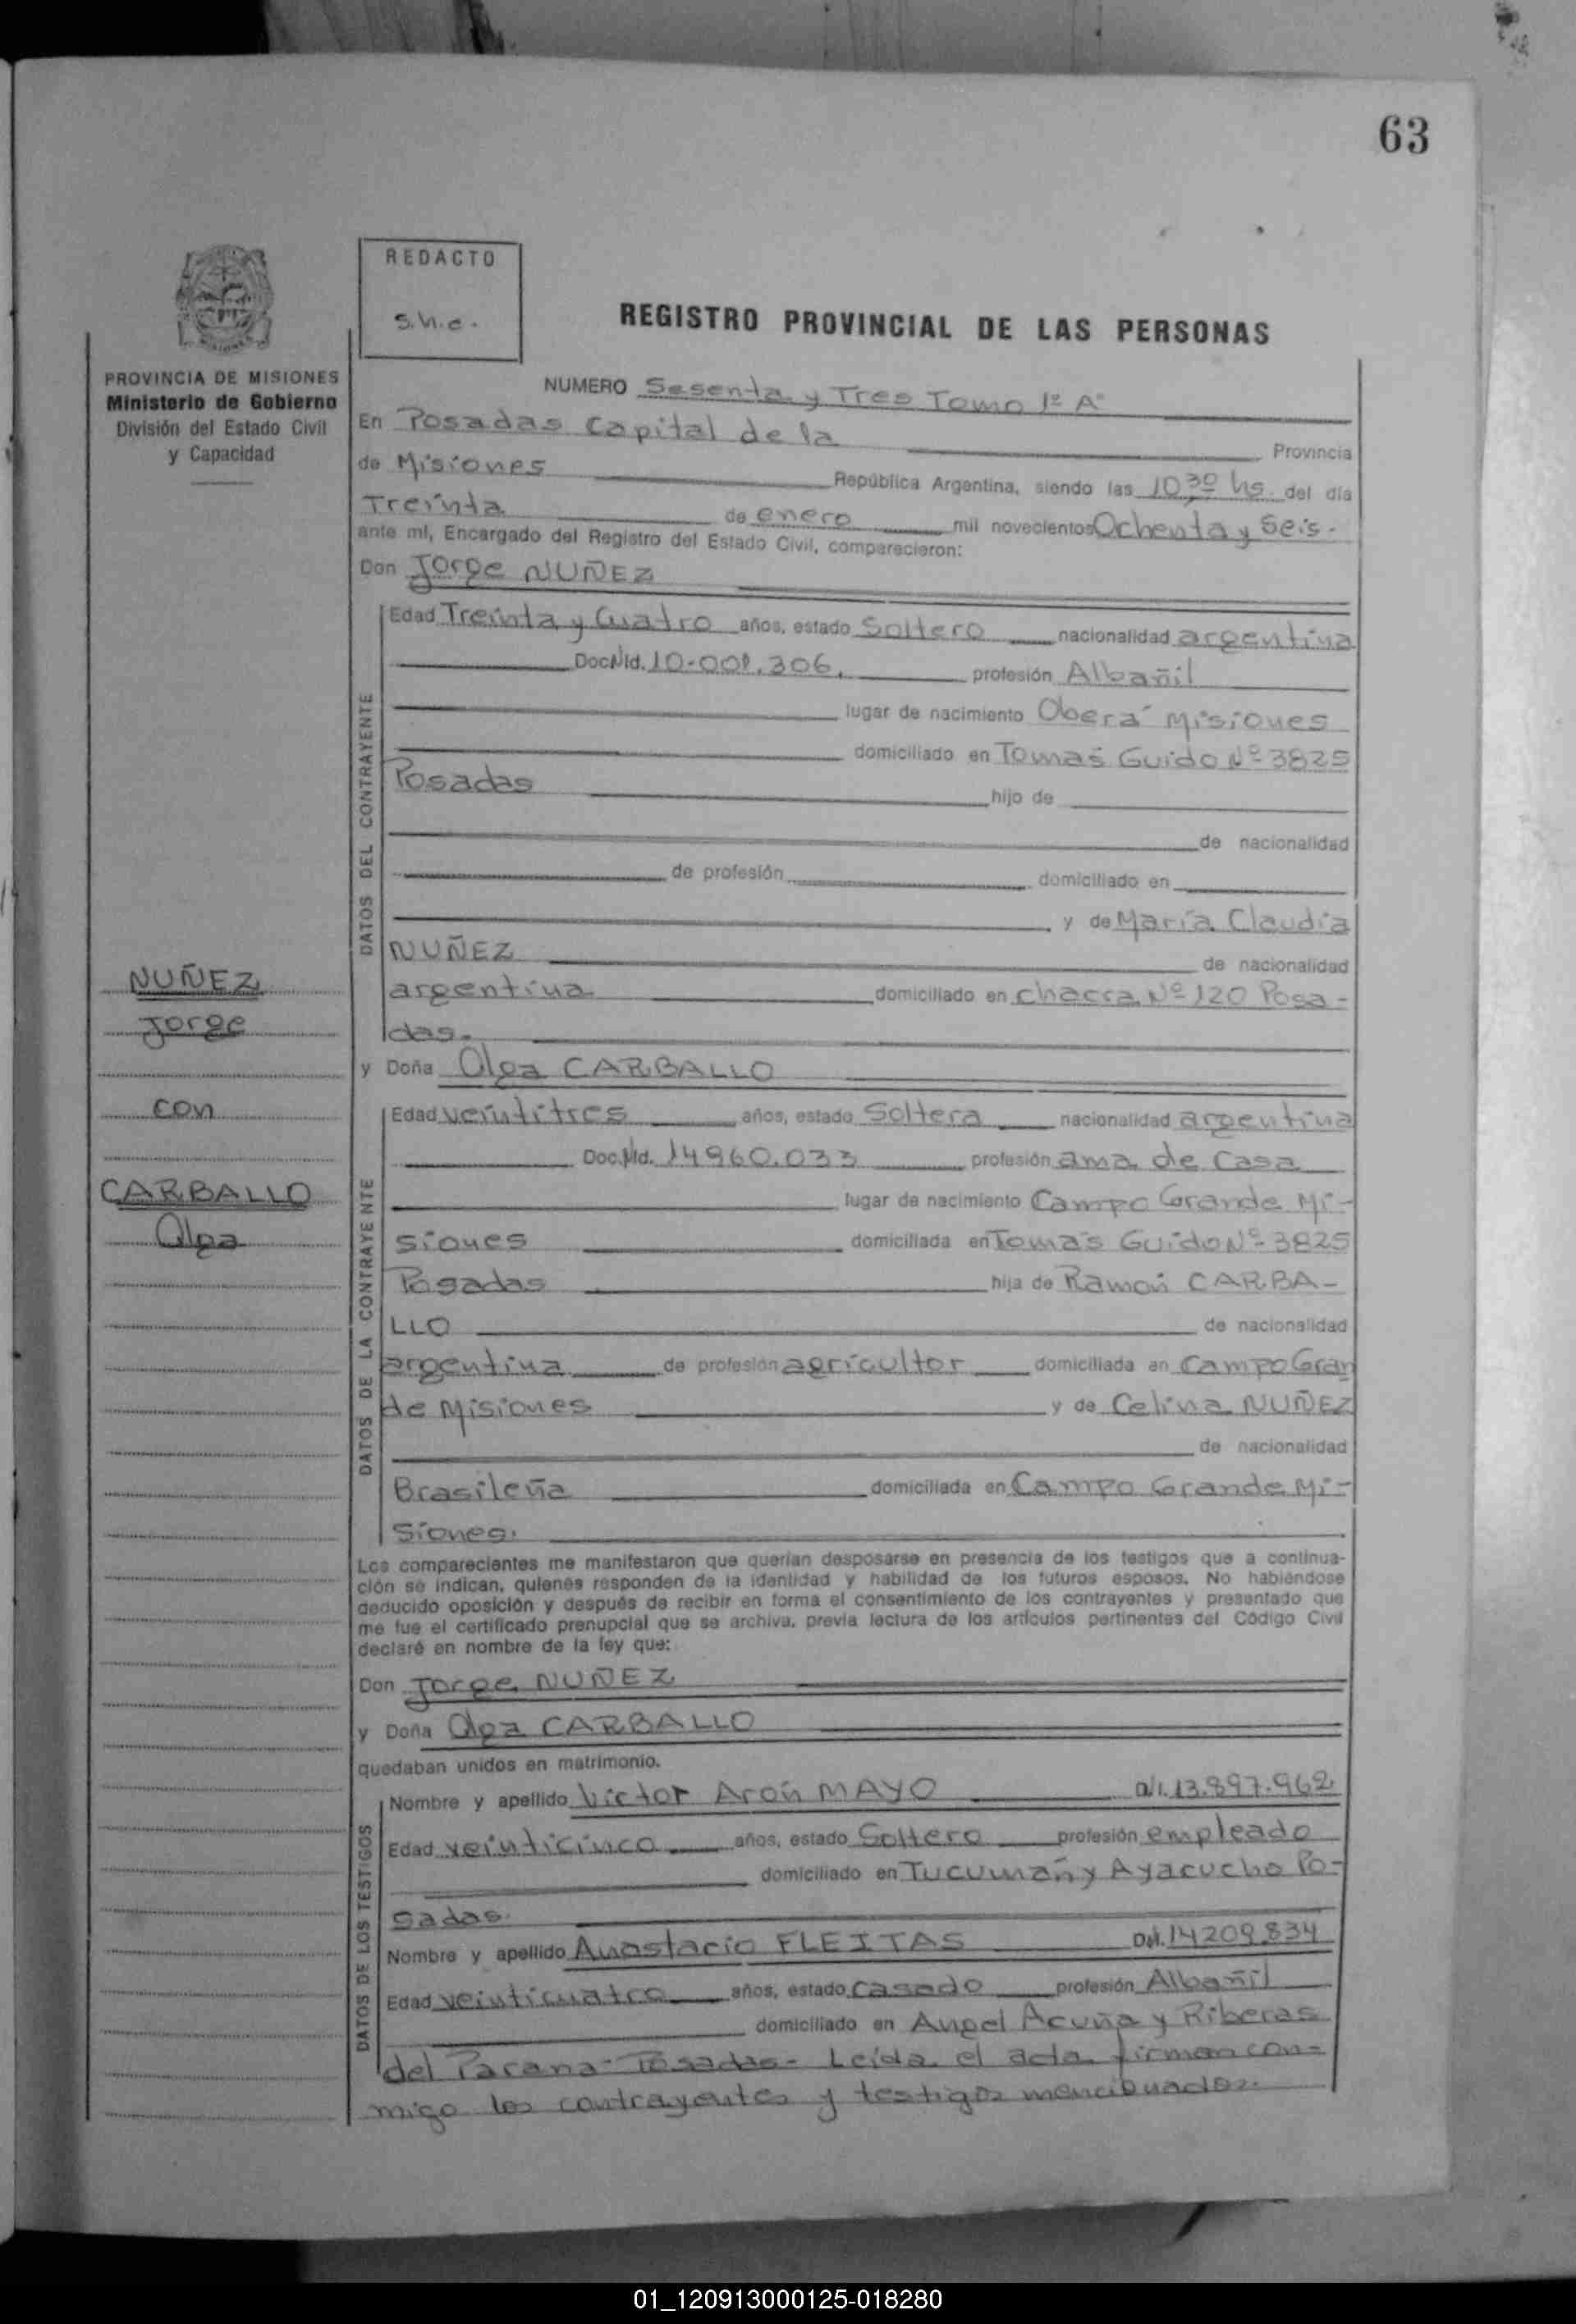 63
REDACTO
S.N.C.
REGISTRO PROVINCIAL DE LAS PERSONAS
PROVINCIA DE MISIONES
Ministerio de Gobierno
División del Estado Civil
y Capacidad
NUMERO Sesenta y Tres Tomo 1º A"
En Posadas Capital de la Provincia
de Misiones República Argentina, siendo las 10,30 hs. del día
Treinta de enero mil novecientos Ochenta y Seis.
ante mí, Encargado del Registro del Estado Civil, comparecieron:
Don Jorge NUÑEZ
DATOS DEL CONTRAYENTE
Edad Treinta y Cuatro años, estado Soltero nacionalidad argentina
Doc.N.Id. 10.001.306. profesión Albañil
lugar de nacimiento Oberá Misiones
domiciliado en Tomás Guido Nº 3825
Posadas hijo de
de nacionalidad
de profesión domiciliado en
y de María Claudia
NUÑEZ de nacionalidad
argentina domiciliado en chacra Nº 120 Posa-
das.
NUÑEZ
Jorge
con
CARBALLO
Olga
y Doña Olga CARBALLO
DATOS DE LA CONTRAYENTE
Edad veintitres años, estado Soltera nacionalidad argentina
Doc.N.Id. 14960.033 profesión ama de casa
lugar de nacimiento Campo Grande Mi-
siones domiciliada en Tomás Guido Nº 3825
Posadas hija de Ramón CARBA-
LLO de nacionalidad
argentina de profesión agricultor domiciliada en Campo Gran
de Misiones y de Celina NUÑEZ
de nacionalidad
Brasileña domiciliada en Campo Grande Mi-
siones.
Los comparecientes me manifestaron que querían desposarse en presencia de los testigos que a continua-
ción se indican, quienes responden de la identidad y habilidad de los futuros esposos. No habiéndose
deducido oposición y después de recibir en forma el consentimiento de los contrayentes y presentado que
me fue el certificado prenupcial que se archiva, previa lectura de los artículos pertinentes del Código Civil
declaré en nombre de la ley que:
Don Jorge NUÑEZ
y Doña Olga CARBALLO
quedaban unidos en matrimonio.
DATOS DE LOS TESTIGOS
Nombre y apellido Victor Arón MAYO D.I. 13.897.962
Edad veinticinco años, estado Soltero profesión empleado
domiciliado en Tucumán y Ayacucho Po-
sadas.
Nombre y apellido Anastacio FLEITAS D.I. 14209834
Edad veinticuatro años, estado casado profesión Albañil
domiciliado en Angel Acuña y Riberas
del Parana- Posadas- Leída el acta firman con-
migo los contrayentes y testigos mencionados.
01_120913000125-018280